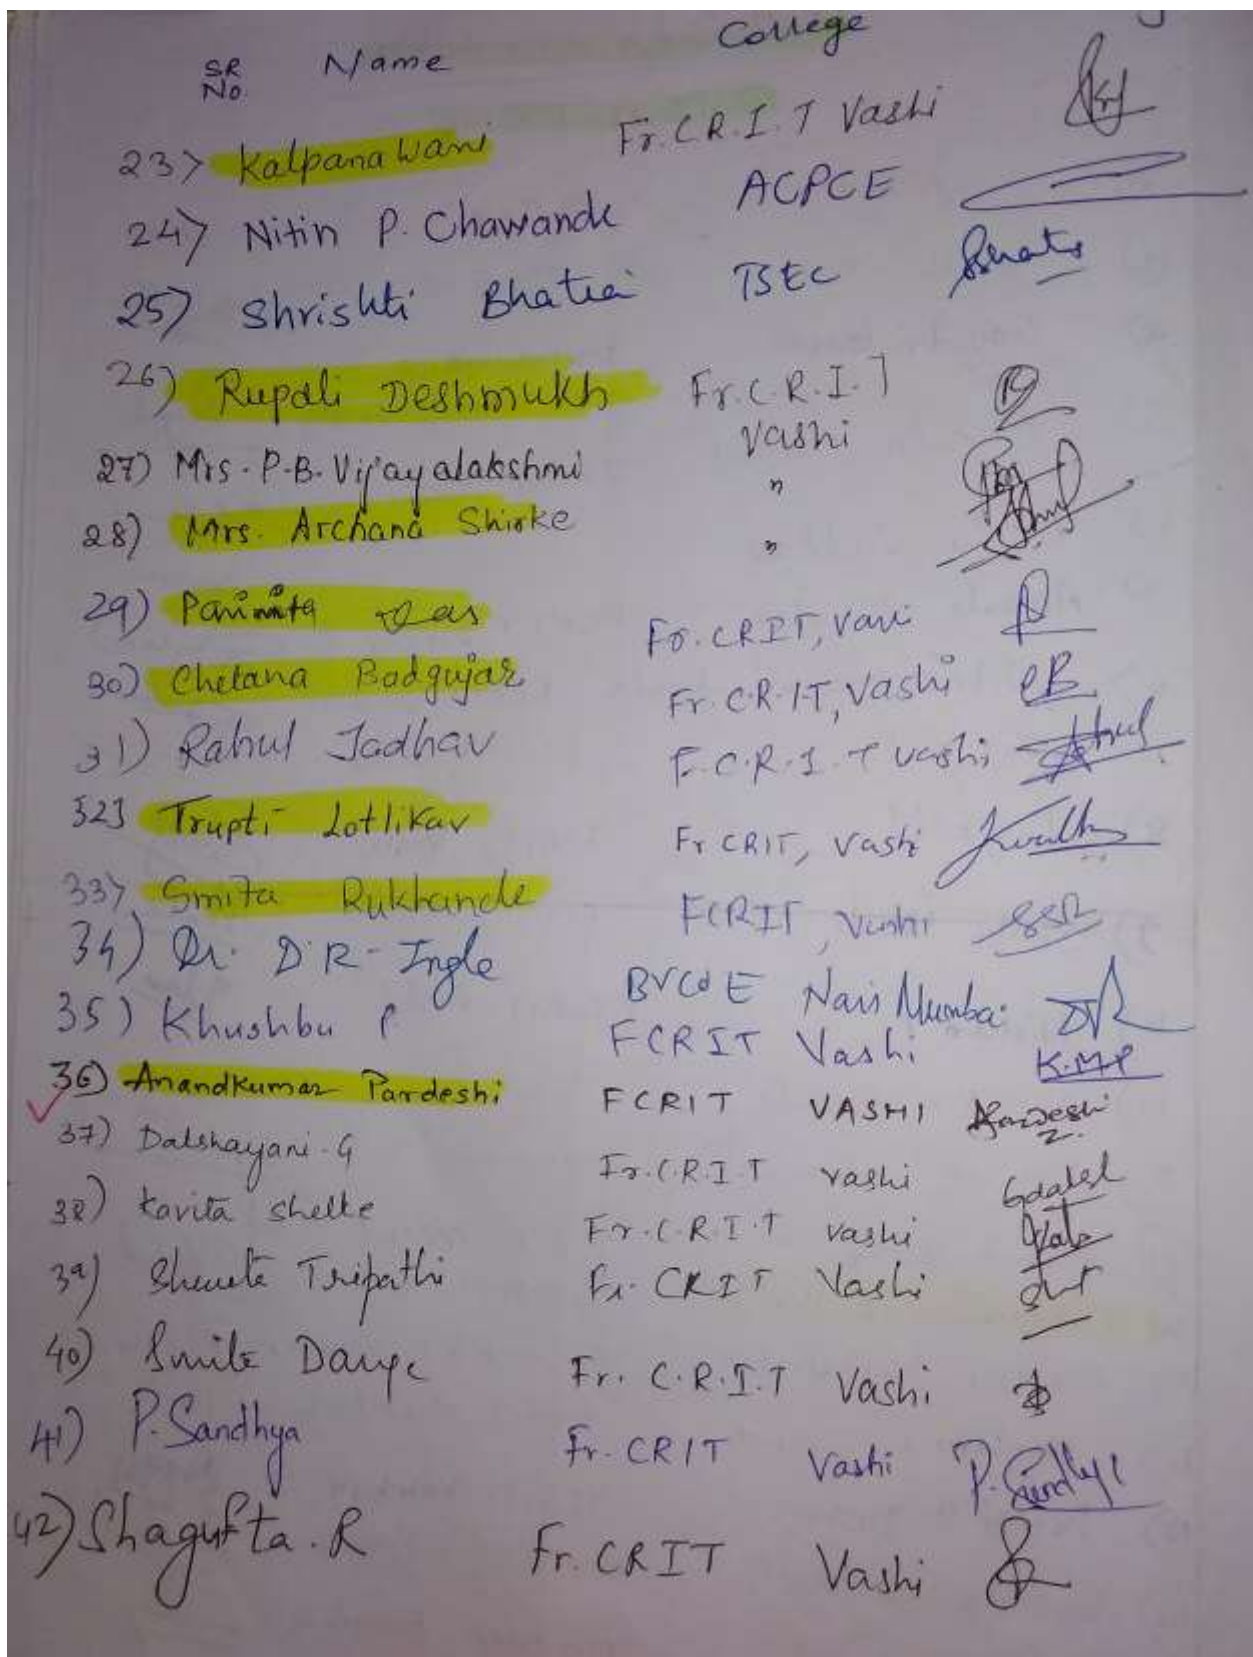 SR No. Name College
23) Kalpana Wani Fr. C.R.I.T Vashi
24) Nitin P. Chavande ACPCE
25) Shrishti Bhatia TSEC
26) Rupali Deshmukh Fr. C.R.I.T
Vashi
27) Mrs. P.B. Vijayalakshmi "
28) Mrs. Archana Shirke "
29) Parimita Das Fr. CRIT, Vashi
30) Chetana Badgujar Fr. C.R.IT, Vashi CB
31) Rahul Jadhav F.C.R.I.T Vashi
32] Trupti Lotlikar Fr CRIT, Vashi
33) Smita Rukhande FCRIT, Vashi SSR
34) Dr. D.R. Ingle BVCOE Navi Mumbai
35) Khushbu P FCRIT Vashi K.M.P
36) Anandkumar Pardeshi FCRIT VASHI Apardeshi
37) Dakshayani. G Fr. C.R.I.T Vashi
38) Kavita Shelke Fr. C.R.I.T Vashi
39) Shweta Tripathi Fr. CRIT Vashi
40) Smita Dange Fr. C.R.I.T Vashi
41) P. Sandhya Fr. CRIT Vashi P. Sandhya
42) Shagufta. R Fr. CRIT Vashi